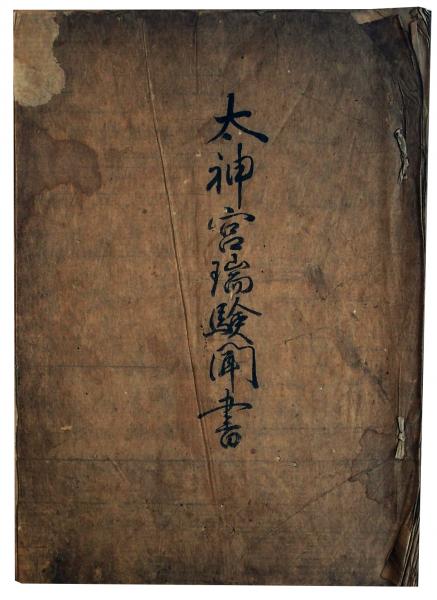 太神宮瑞験聞書